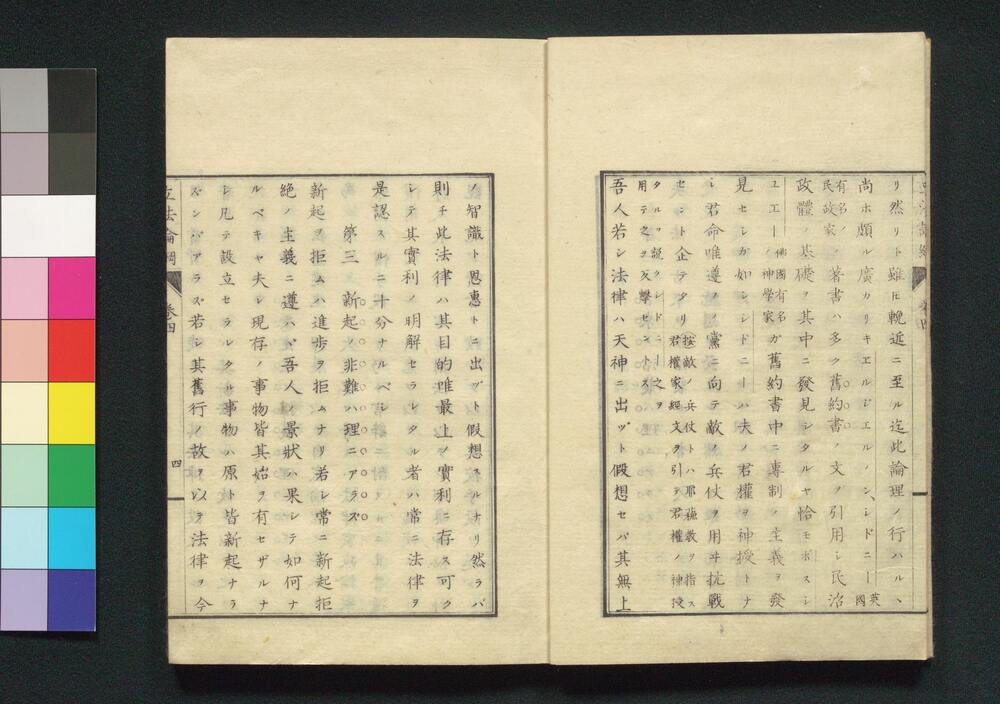 リ然リト雖ヒ輓近ニ至ル迄此論理ノ行ハルヽ
尚ホ頗ル廣カリキエルジエルノン、シドニー英國
有名ノ民政家ノ著書ハ多ク舊約書ノ文ヲ引用シ民治
政體ノ基礎ヲ其中ニ發見シタルヤ恰モボスシ
ユエー佛國有名ノ神學家ガ舊約書中ニ專制ノ主義ヲ發
見セシガ如シシドニーハ夫ノ君權ヲ神授トナ
シ君命唯遵ノノ黨ニ向テ敵ノ兵仗ヲ用ヰ抗戰
セント企テタリ按敵ノ兵仗トハ耶蘇教ヲ指ス君權家經文ヲ引テ君權ノ神授
タルヲ説クシドニー之ヲ用テ之ヲ反撃セントス
吾人若シ法律ハ天神ニ出ヅト假想セバ其無上
ノ智識ト恩惠トニ出ヅト假想スルナリ然ラバ
則チ此法律ハ其目的唯最上ノ實利ニ存ス可ク
シテ其實利ノ明解セラレタル者ハ常ニ法律ヲ
是認スルニ十分ナルベシ
第三 新起ノ非難ハ理ニアラズ
新起ヲ拒ムハ進歩ヲ拒ムナリ若シ常ニ新起拒
絶ノ主義ニ遵ハヾ吾人ノ景狀ハ果シテ如何ナ
ルベキヤ夫レ現存ノ事物皆其始ヲ有セザルナ
シ凡テ設立セラレタル事物ハ原ト皆新起ナラ
ズンバアラズ若シ其舊行ノ故ヲ以テ法律ヲ今
立法論綱 卷四 四